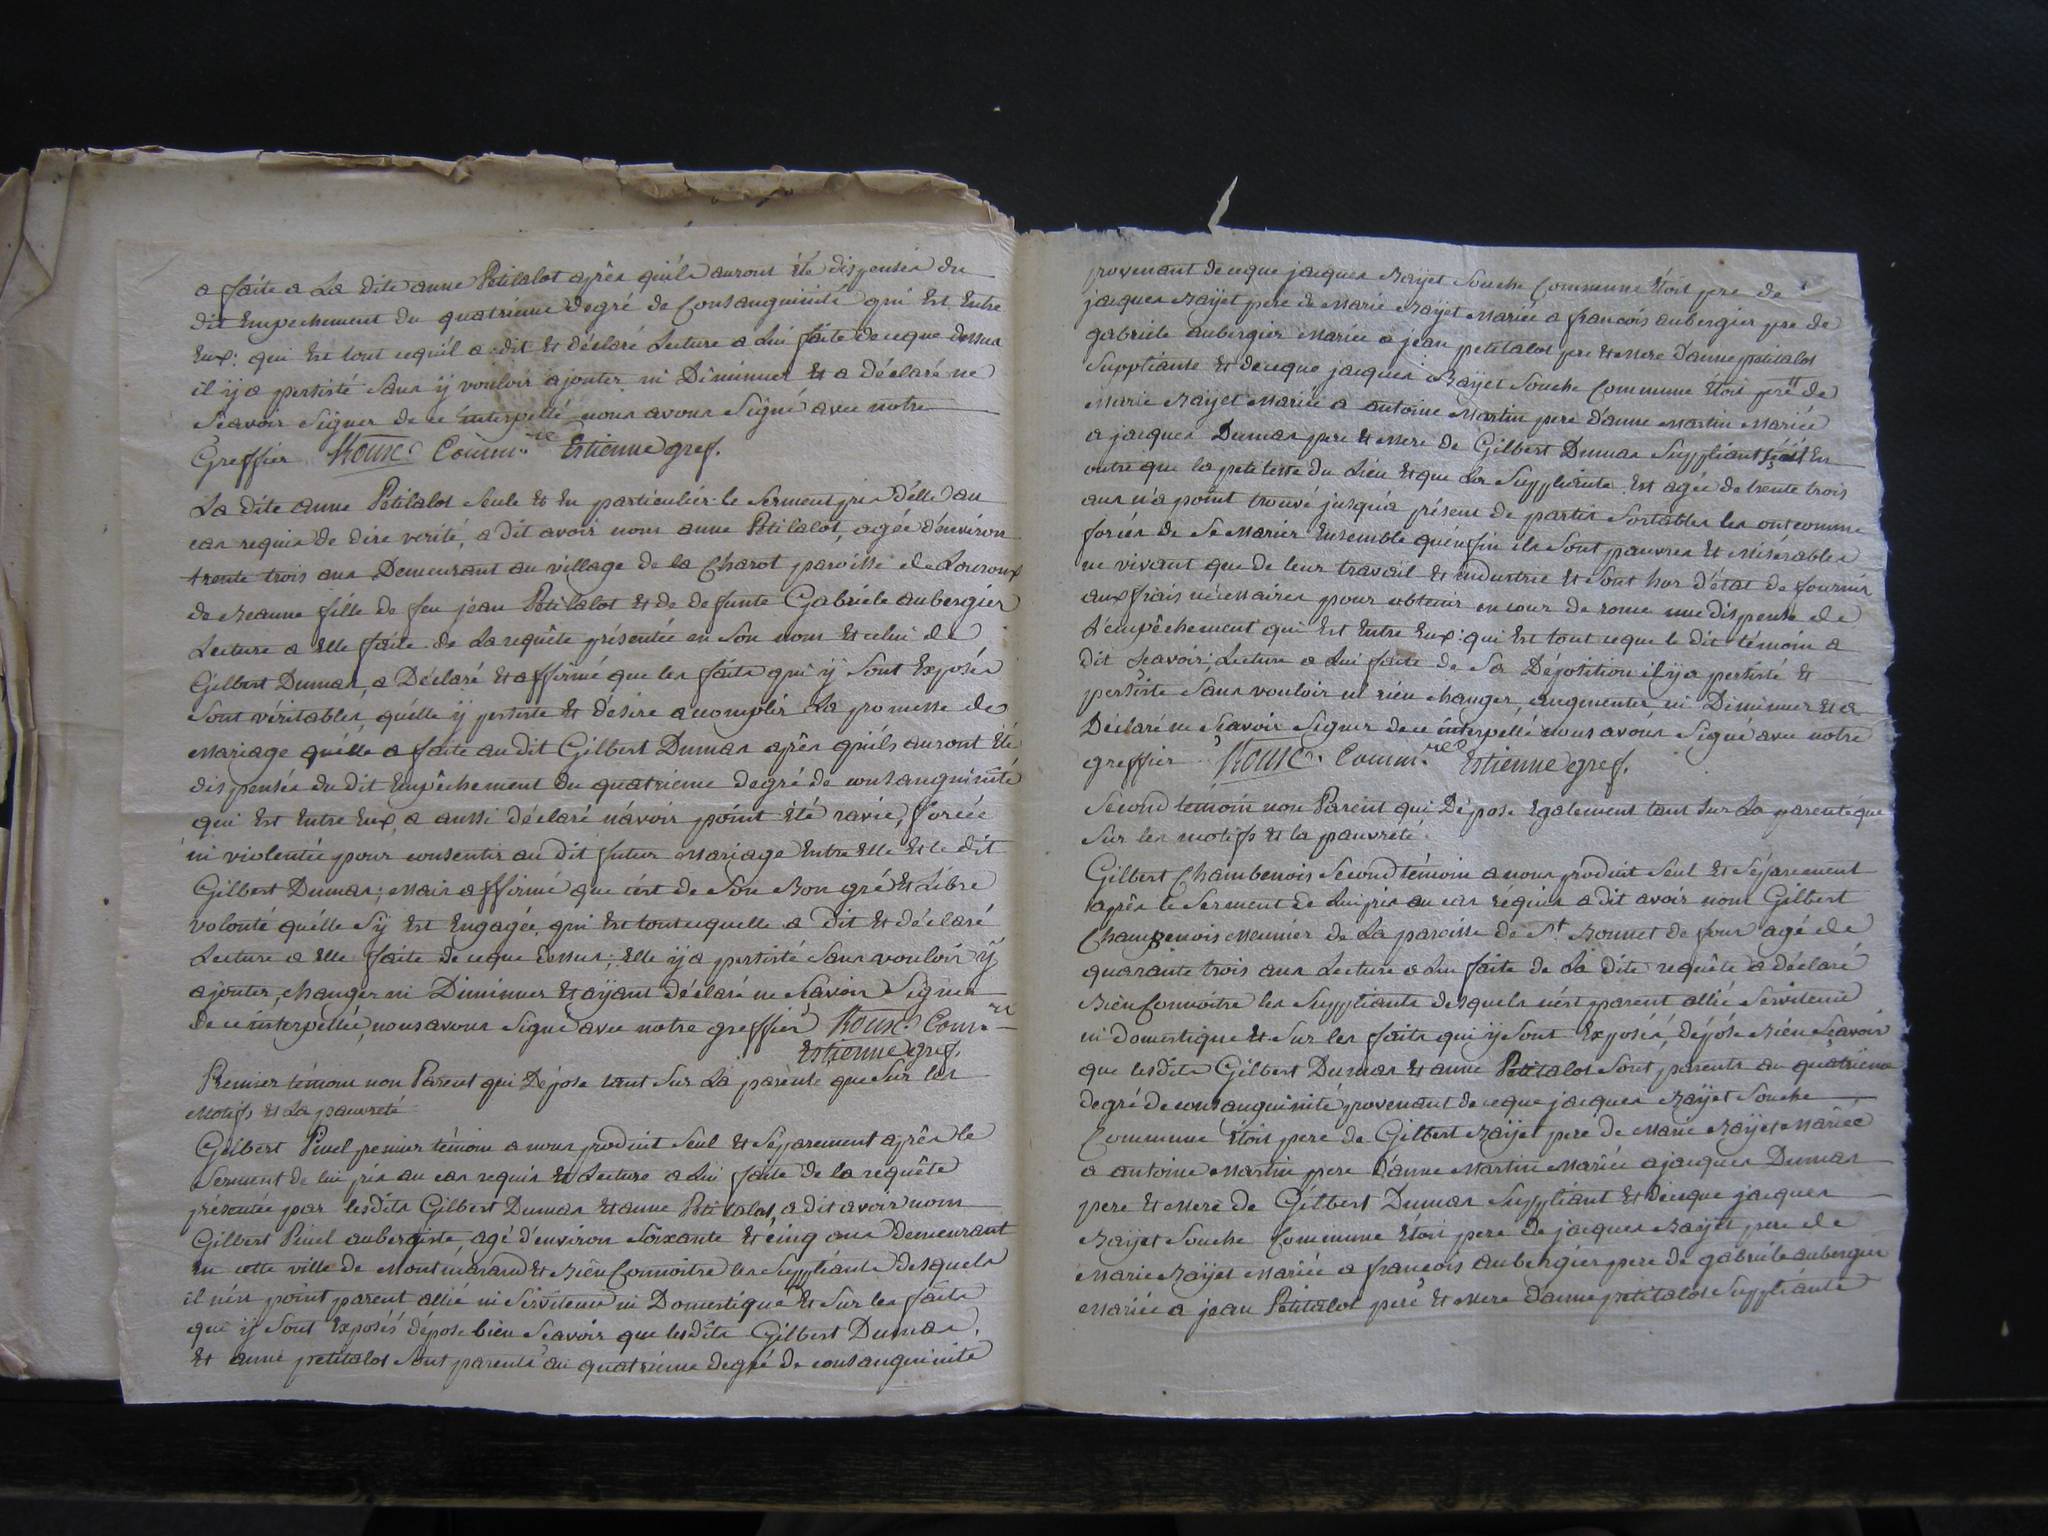 a faite a La dite anne Petitalot après qu'ils auront été dispensés du
dit Empechement du quatrieme degré de Consanguinité qui Est Entre
Eux: qui Est tout cequ'il a dit Et déclaré Lecture a Lui faite de ceque dessus
il ÿ a persisté Sans ÿ vouloir ajouter ni Diminuer Et a déclaré ne
Scavoir Signer de ce interpellé nous avons Signé avec notre
Greffier Roux Comm.re Estienne gref.
La dite anne Petitalot Seule Et En particulier le Serment pris d'elle au
cas requis de dire verité, a dit avoir nom anne Petitalot, agée d'environ
trente trois ans Demeurant au village de la Charot paroisse de Louroux
de Beaune fille de feu jean Petitalot Et de defunte Gabriele aubergier
Lecture a Elle faite de La requête présentée en Son nom Et celui de
Gilbert Dumas, a Déclaré Et affirmé que les faits qui ÿ Sont Exposés
Sont véritables, qu'elle ÿ persiste Et désire acomplir La promesse de
Mariage qu'elle a faite au dit Gilbert Dumas après qu'ils auront été
dispensés du dit Empêchement du quatrieme degré de consanguinité
qui Est Entre Eux, a aussi déclaré n'avoir point été ravie, forcée
ni violentée pour consentir au dit futur Mariage Entre Elle Et le dit
Gilbert Dumas; Mais affirmé que c'est de Son Bon gré Et Libre
volonté qu'elle S'ÿ Est Engagée, qui Est tout cequelle a dit Et déclaré
Lecture a Elle faite de ceque dessus; Elle ÿ a persisté Sans vouloir ÿ
ajouter, changer ni Diminuer Et aÿant déclaré ne Scavoir Signer
de ce interpellée, nous avons Signé avec notre greffier Roux Comm.re
Estienne gref.
Premier témoin non Parent qui Dépose tant Sur La parenté que Sur les
Motifs Et La pauvreté
Gilbert Pinel premier témoin a nous produit Seul Et Séparement après le
Serment de lui pris au cas requis Et Lecture a Lui faite de la requête
présentée par lesdits Gilbert Dumas Et anne Petitalot, a dit avoir nom
Gilbert Pinel aubergiste agé d'environ Soixante Et cinq ans Demeurant
En cette ville de Montmaraud Et Bien Connoitre les Suppliants desquels
il n'est point parent allié ni Serviteur ni Domestique Et Sur les faits
qui ÿ Sont Exposés depose bien Scavoir que lesdits Gilbert Dumas,
Et anne petitalot Sont parents au quatrieme degré de consanguinité
provenant de ceque jacques Baÿet Souche Commune Etoit pere de
jacques Baÿet pere de Marie Baÿet Mariée a francois aubergier pere de
gabriele aubergier Mariée a jean petitalot pere Et Mere d'anne petitalot
Suppliante Et de ceque jacques Baÿet Souche Commune Etoit pere de
Marie Baÿet Mariée a antoine Martin pere d'anne Martin Mariée
a jacques Dumas pere Et Mere de Gilbert Dumas Suppliant Scait En
outre que la petitesse du Lieu Et que La Suppliante Est agée de trente trois
ans n'a point trouvé jusqu'a présent de partis Sortables les ont comme
forcés de Se Marier Ensemble qu'enfin ils Sont pauvres Et Misérables
ne vivant que de leur travail Et industrie Et Sont hors d'état de fournir
aux frais nécessaires pour obtenir en cour de rome une dispense de
L'empêchement qui Est Entre Eux: qui Est tout ceque le dit témoin a
dit Scavoir; Lecture a Lui faite de Sa Déposition il ÿ a persisté Et
persiste Sans vouloir ni rien changer, augmenter ni Diminuer Et a
Déclaré ne Scavoir Signer de ce interpellé nous avons Signé avec notre
greffier. Roux. Comm.re Estienne gref.
Second témoin non Parent qui Dépose Egalement tant Sur La parenté que
Sur les motifs Et la pauvreté.
Gilbert Chambenois Second témoin a nous produit Seul Et Séparement
après le Serment de Lui pris au cas réquis a dit avoir nom Gilbert
Chambenois Meunier de La paroisse de St. Bonnet de four agé de
quarante trois ans Lecture a Lui faite de La dite requête a déclaré
Bien Connoitre les Suppliants desquels n'est parent allié Serviteur
ni domestique Et Sur les faits qui ÿ Sont Exposés, dépose Bien Scavoir
que lesdits Gilbert Dumas Et anne Petitalot Sont parents au quatrieme
degré de consanguinité provenant de ceque jacques Baÿet Souche
Commune Etoit pere de Gilbert Baÿet pere de Marie Baÿet Mariée
a antoine Martin pere d'anne Martin Mariée a jacques Dumas
pere Et Mere de Gilbert Dumas Suppliant Et de ceque jacques
Baÿet Souche Commune Etoit pere de jacques Baÿet pere de
Marie Baÿet Mariée a francois aubergier pere de gabriele aubergier
Mariée a jean Petitalot pere Et Mere d'anne petitalot Suppliante